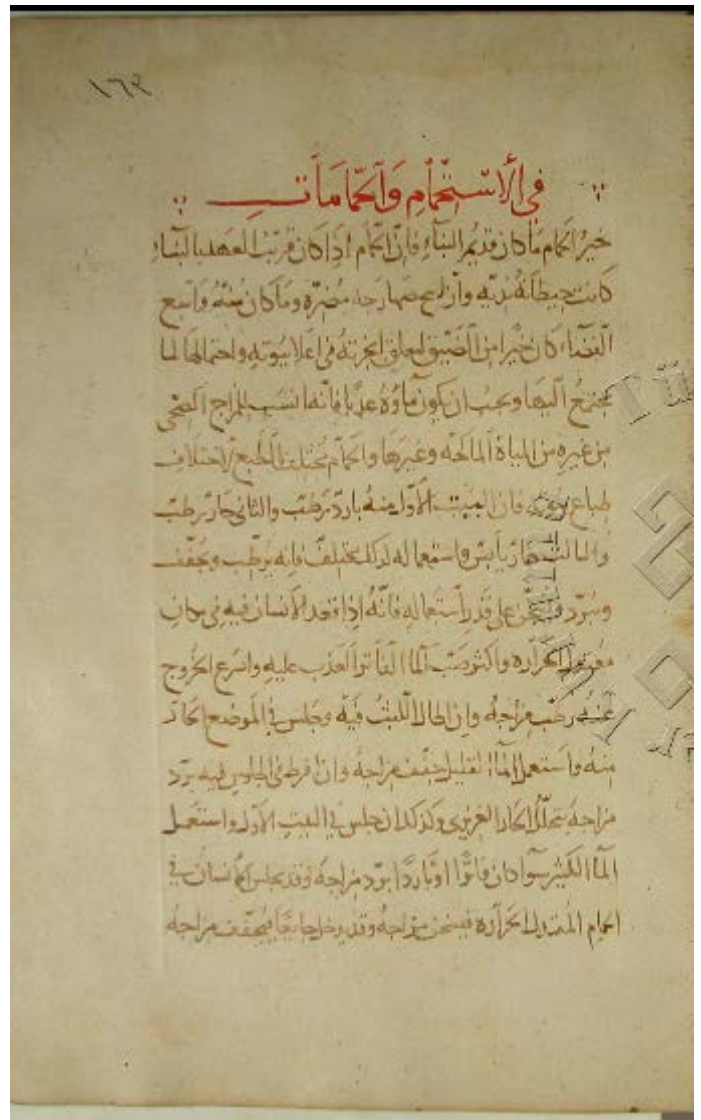 ١٦٢
في الاستحمام والحمامات
خير الحمام ما كان قديم البناء فان الحمام اذا كان قريب العهد بالبناء
كانت حيطانه نديه وان ريح صهارجه مضره وما كان منه واسع
الفضاء كان خيرا من الضيق لتعلق ابخرته في اعلا بيوته واحتمالها لما
يجتمع اليها ويجب ان يكون ماؤه عذبا فانه انسب للمزاج الصحي
من غيره من المياه المالحه وغيرها والحمام مختلف الطبع لاختلاف
طباع بيوته فان البيت الاول منه بارد رطب والثاني حار رطب
والثالث حار يابس واستعماله لذلك يختلف فانه يرطب ويجفف
ويبرد ويسخن على قدر استعماله فانه اذا قعد الانسان فيه في مكان
معتدل الحراره واكثر صب الما الفاتر العذب عليه واسرع الخروج
عنه رطب مزاجه وان اطال اللبث فيه وجلس في الموضع الحار
منه واستعمل الما القليل جفف مزاجه وان افرط في الجلوس فيه برد
مزاجه بتحلل الحار الغريزي وكذلك ان جلس في البيت الاول واستعمل
الما الكثير سوا كان فاترا او باردا برد مزاجه وقد يجلس الانسان في
الحمام المعتدل الحراره فيسخن مزاجه وقد يدخل جايعا فيجفف مزاجه